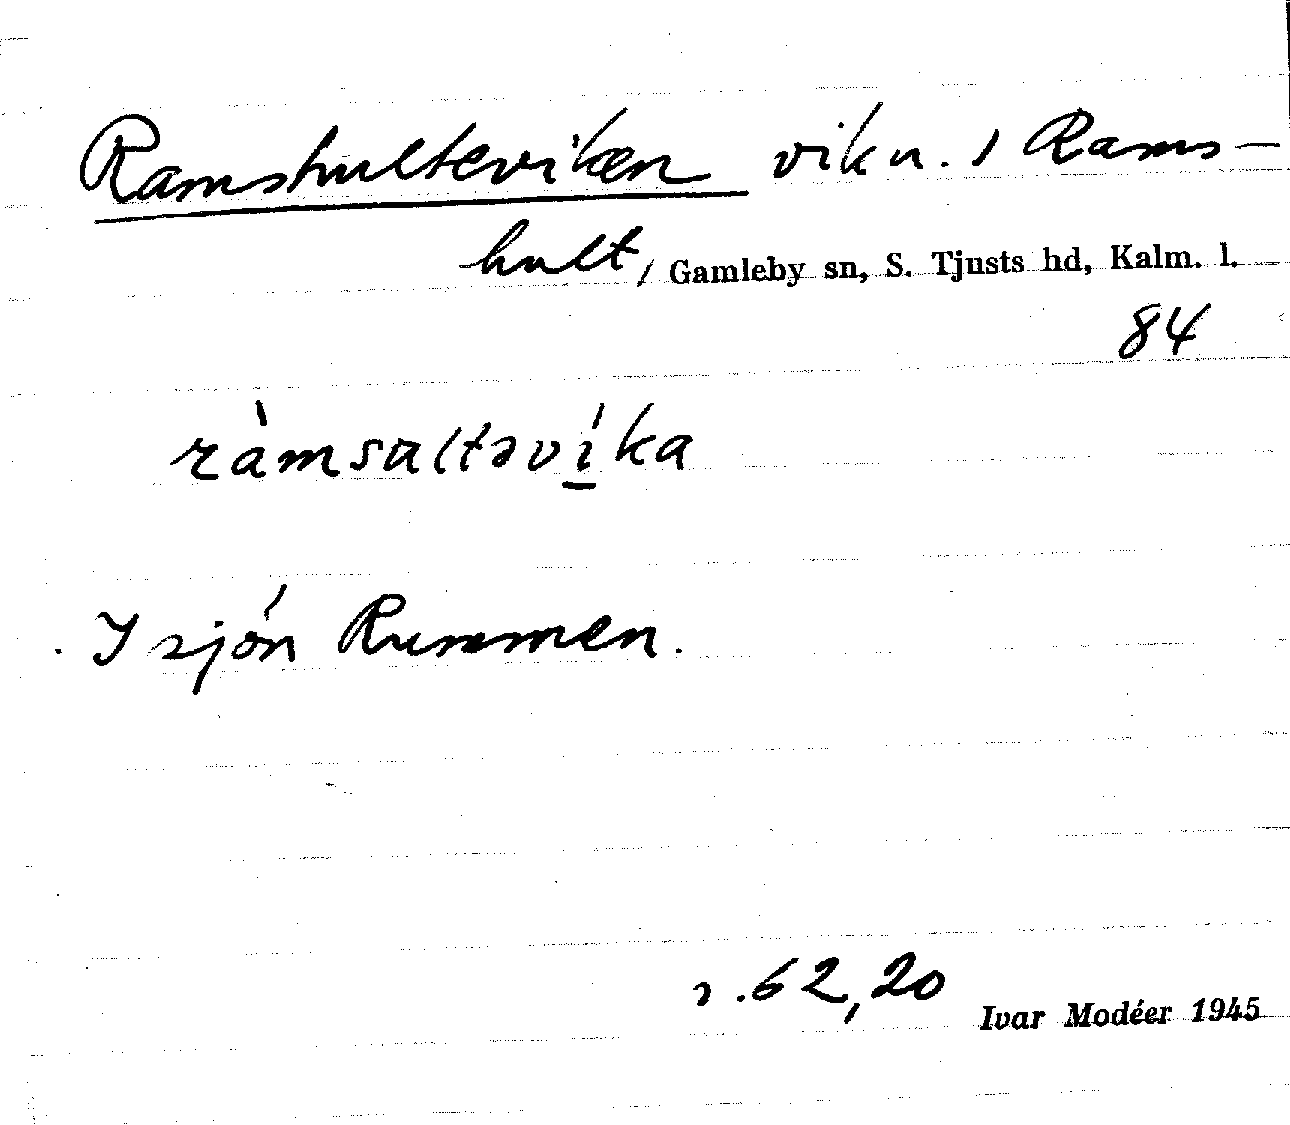 Ramshulteviken vik n. / Rams-
hult / Gamleby sn, S. Tjusts hd, Kalm. l.
84
ràmsaltəvíka
I sjön Rummen.
s. 62,20 Ivar Modéer 1945